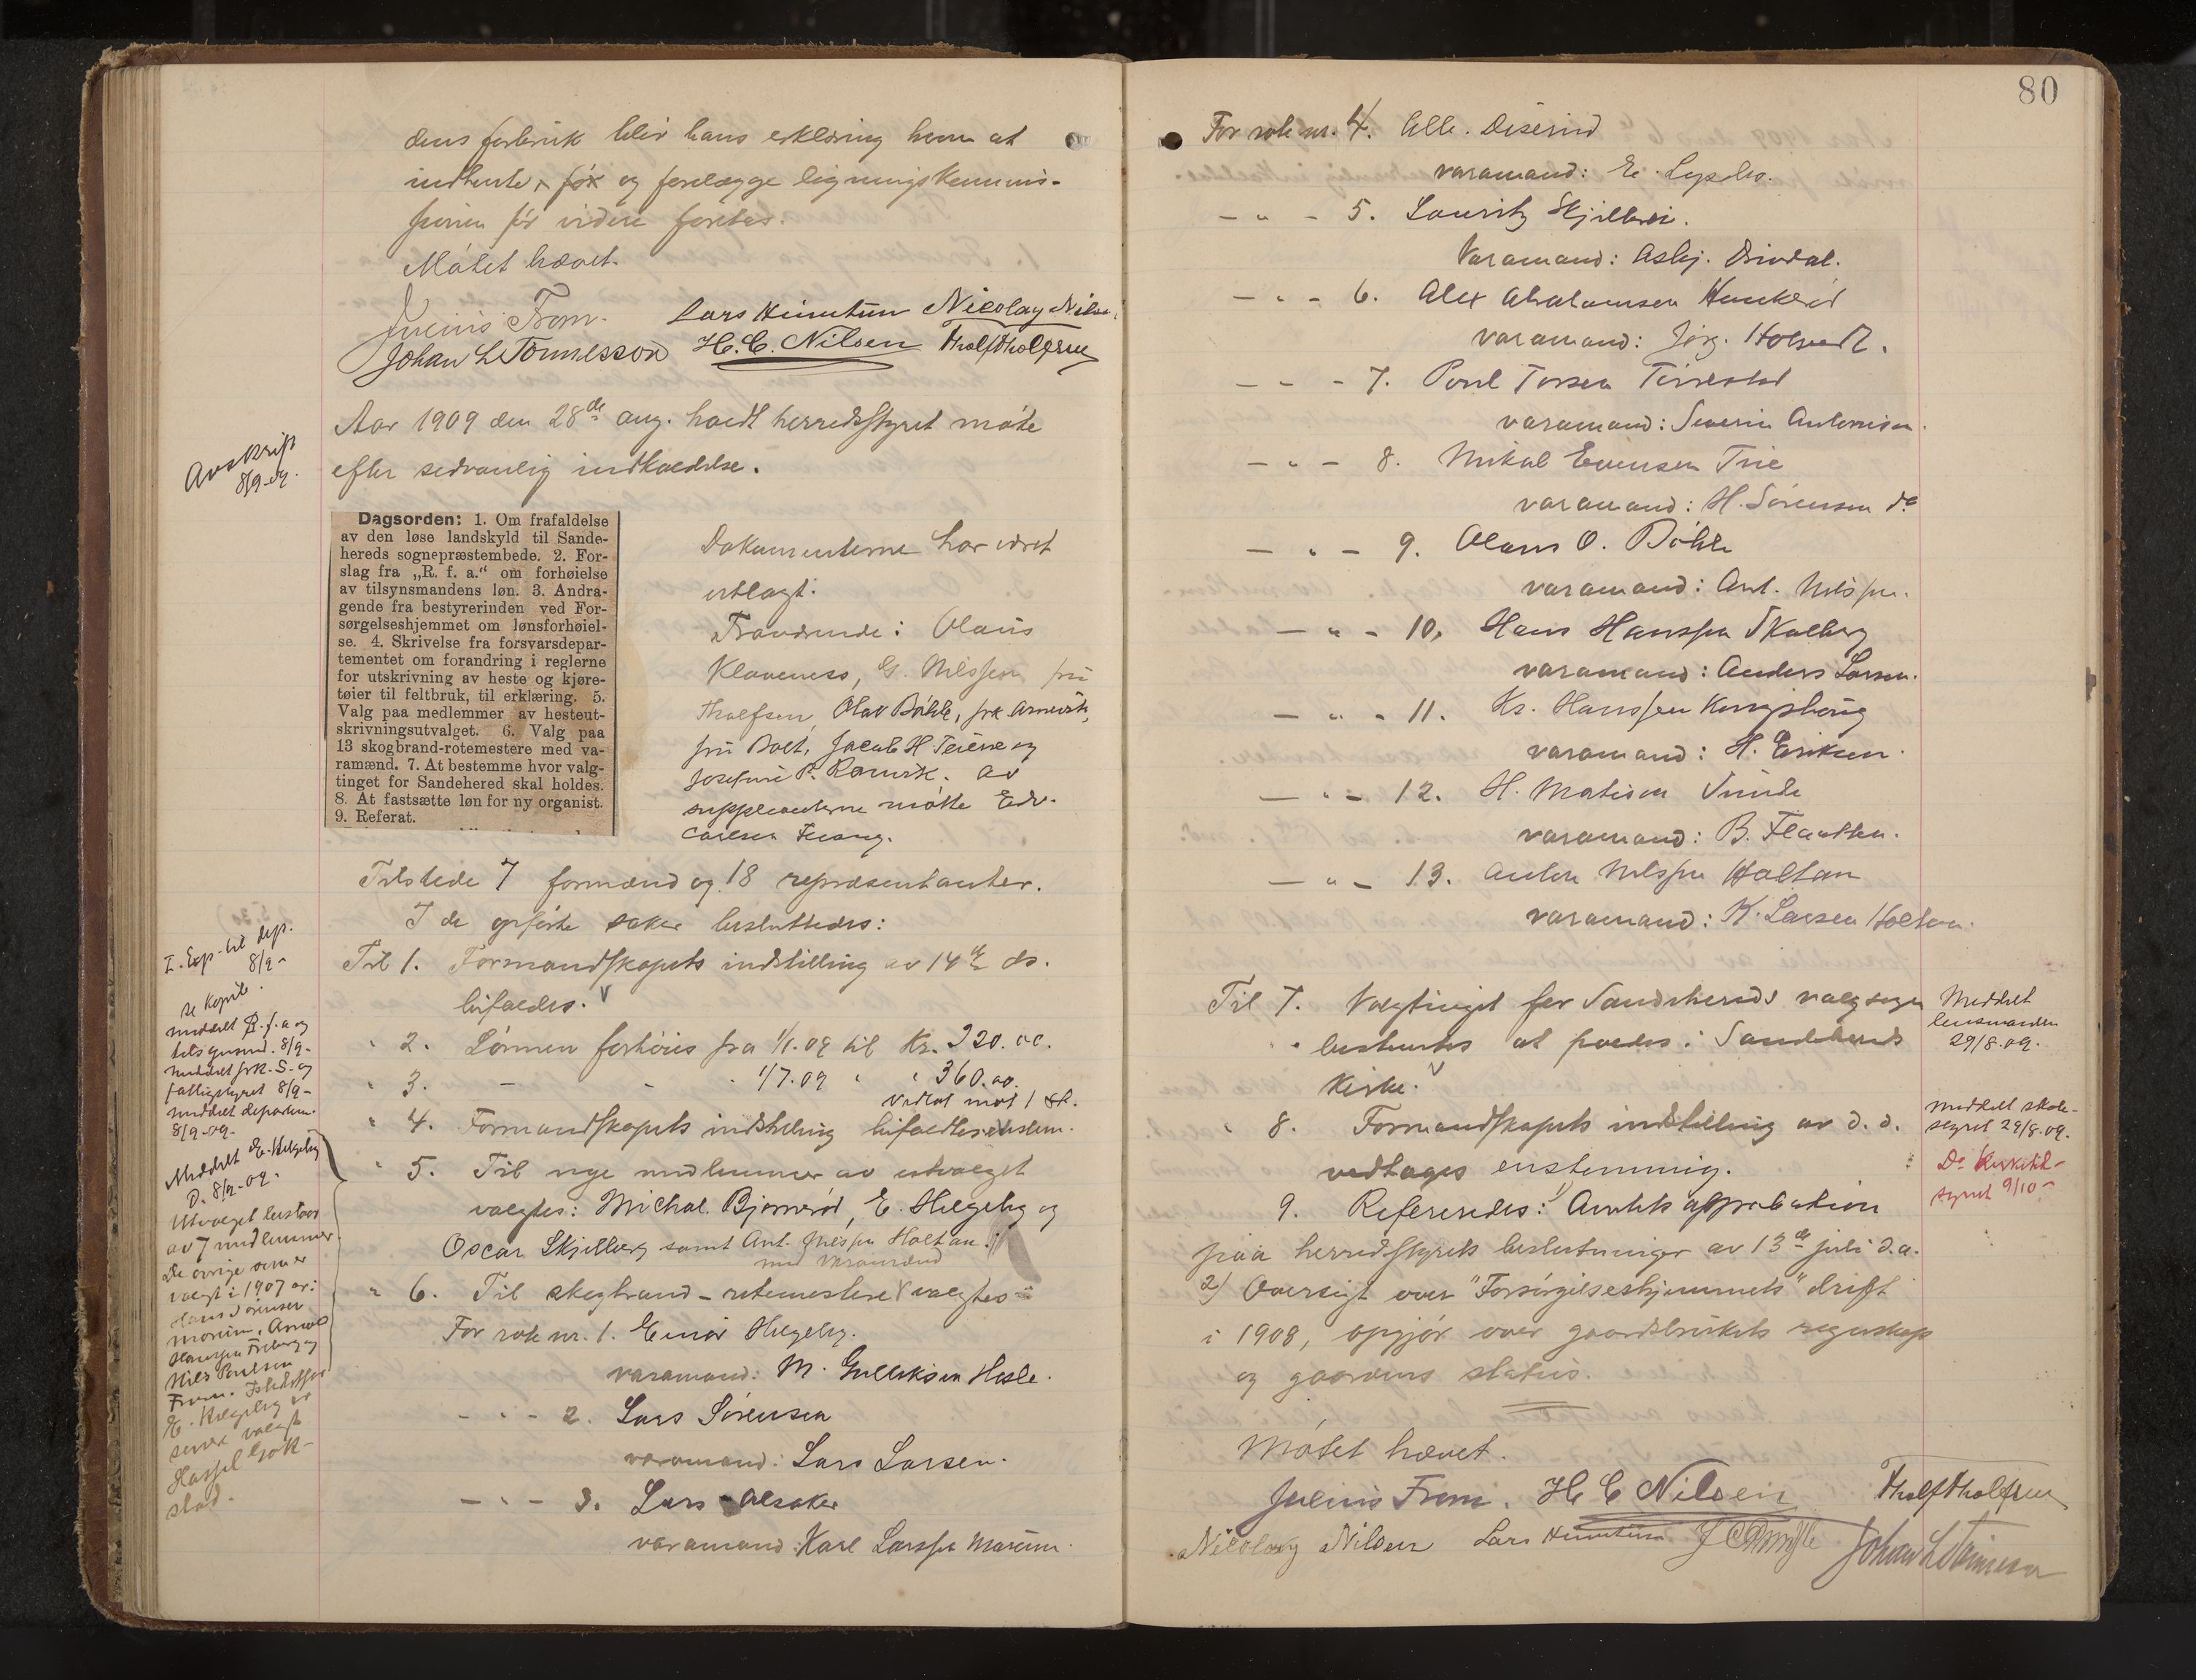 dens forbruk blir hans erklæring herom at
indhente, før og forelægge ligningskommis-
sionen før videre foretas.
Møtet hævet.
Julius From. Lars Hunstun Nicolay Nilsen
Johan L Tønnesson H. C. Nilsen Tholf Tholfsen
Avskrift
8/9-09.
Aar 1909 den 28de aug. holdt herredsstyret møte
efter sedvanlig indkaldelse.
Dagsorden: 1. Om frafaldelse
av den løse landskyld til Sande-
hereds sognepræstembede. 2. For-
slag fra „R. f. a.“ om forhøielse
av tilsynsmandens løn. 3. Andra-
gende fra bestyrerinden ved For-
sørgelseshjemmet om lønsforhøiel-
se. 4. Skrivelse fra forsvarsdepar-
tementet om forandring i reglerne
for utskrivning av heste og kjøre-
tøier til feltbruk, til erklæring. 5.
Valg paa medlemmer av hesteut-
skrivningsutvalget. 6. Valg paa
13 skogbrand-rotemestere med va-
ramænd. 7. At bestemme hvor valg-
tinget for Sandehered skal holdes.
8. At fastsætte løn for ny organist.
9. Referat.
Dokumenterne har været
utlagt.
Fraværende: Olaus
Klaveness, G. Nilssen fru
Tholfsen, Olav Bøhle, frk.
fru Jacob H Teiene og
Josefine P. av
suppleanterne møtte Edv.
Carlsen
Tilstede 7 formænd og 18 repræsentanter.
I de opførte saker besluttedes:
Til 1. Formandskapets indstilling av 14de ds.
bifaldes.
" 2. Lønnen forhøies fra 1/1.09 til Kr. 320.00.
" 3. - - " 1/7.09 " " 360.00.
Vedtat mot 1 st.
" 4. Formandskapets indstilling bifaldtes enstem.
" 5. Til nye medlemmer av utvalget
valgtes: Michal Bjørnerød, E. Helgeby og
Oscar Skjelberg samt Ant. Nilssen Holtan.
med varamænd
" 6. Til skogbrand-rotemestere valgtes:
For rote nr. 1. Einar Helgeby.
varamand: M. Gulliksen Hasle.
- " - 2. Lars Sørensen
varamand: Lars Larsen.
- " - 3. Lars Aasaker
varamand: Karl Larssen Marum.
I. Exp. til dep.
8/9-
se kopib.
meddelt R. f. a og
tilsynsmd. 8/9-
meddelt frk. S. og
fattigstyret 8/9-
meddelt departem.
8/9-09-
Meddelt E. Helgeby
D. 8/9-09-
Utvalget bestaar
av 7 medlemmer.
De øvrige som er
valgt i 1907 er:
Hans Sørensen
Marum,
Hanssen Freberg og
Nils Paulsen
From.
E. Helgeby er
senere valgt
Hassel Gok-
stad.
80
For rote nr. 4. Alb.
varamand: E.
- " - 5. Lauritz Skjelbrei.
Varamand: Asbj.
- " - 6. Alex Abrahamsen Hunkerød
varamand: Jørg. Holmedt.
- " - 7. Povel Torsen
varamand: Severin Antonisen.
- " - 8. Mikal Evensen
varamand: H. Sørensen do
- " - 9. Olaus O. Bøhle
varamand: Ant. Nilssen.
- " - 10. Hans Hanssen Skolberg
varamand: Anders Larsen.
- " - 11. Kr. Hanssen Kongsberg
varamand: H. Eriksen.
- " - 12. H. Matisen Sunde
varamand: B. Flaatten.
- " - 13. Anton Nilssen Holtan
varamand: K. Larsen Holtan.
Til 7. Valgtinget for Sandehereds valgsogn
bestemtes at holdes i Sandehereds
kirke.
Meddelt
lensmanden
29/8.09.
" 8. Formandskapets indstilling av d. d.
vedtages enstemmig.
meddelt skole-
styret 29/8.09.
Do Kirketil-
synet 9/10-
9. Refereredes: 1) Amtets approbation
paa herredsstyrets beslutninger av 13de juli d.a.
2) Oversigt over "Forsørgelseshjemmets" drift
i 1908, opgjør over gaardsbrukets regnskap
og gaardens status.
Møtet hævet.
Julius From. H C Nilsen Tholf Tholfsen
Nicolay Nilsen Lars Hunstun Johan L Tønnesson